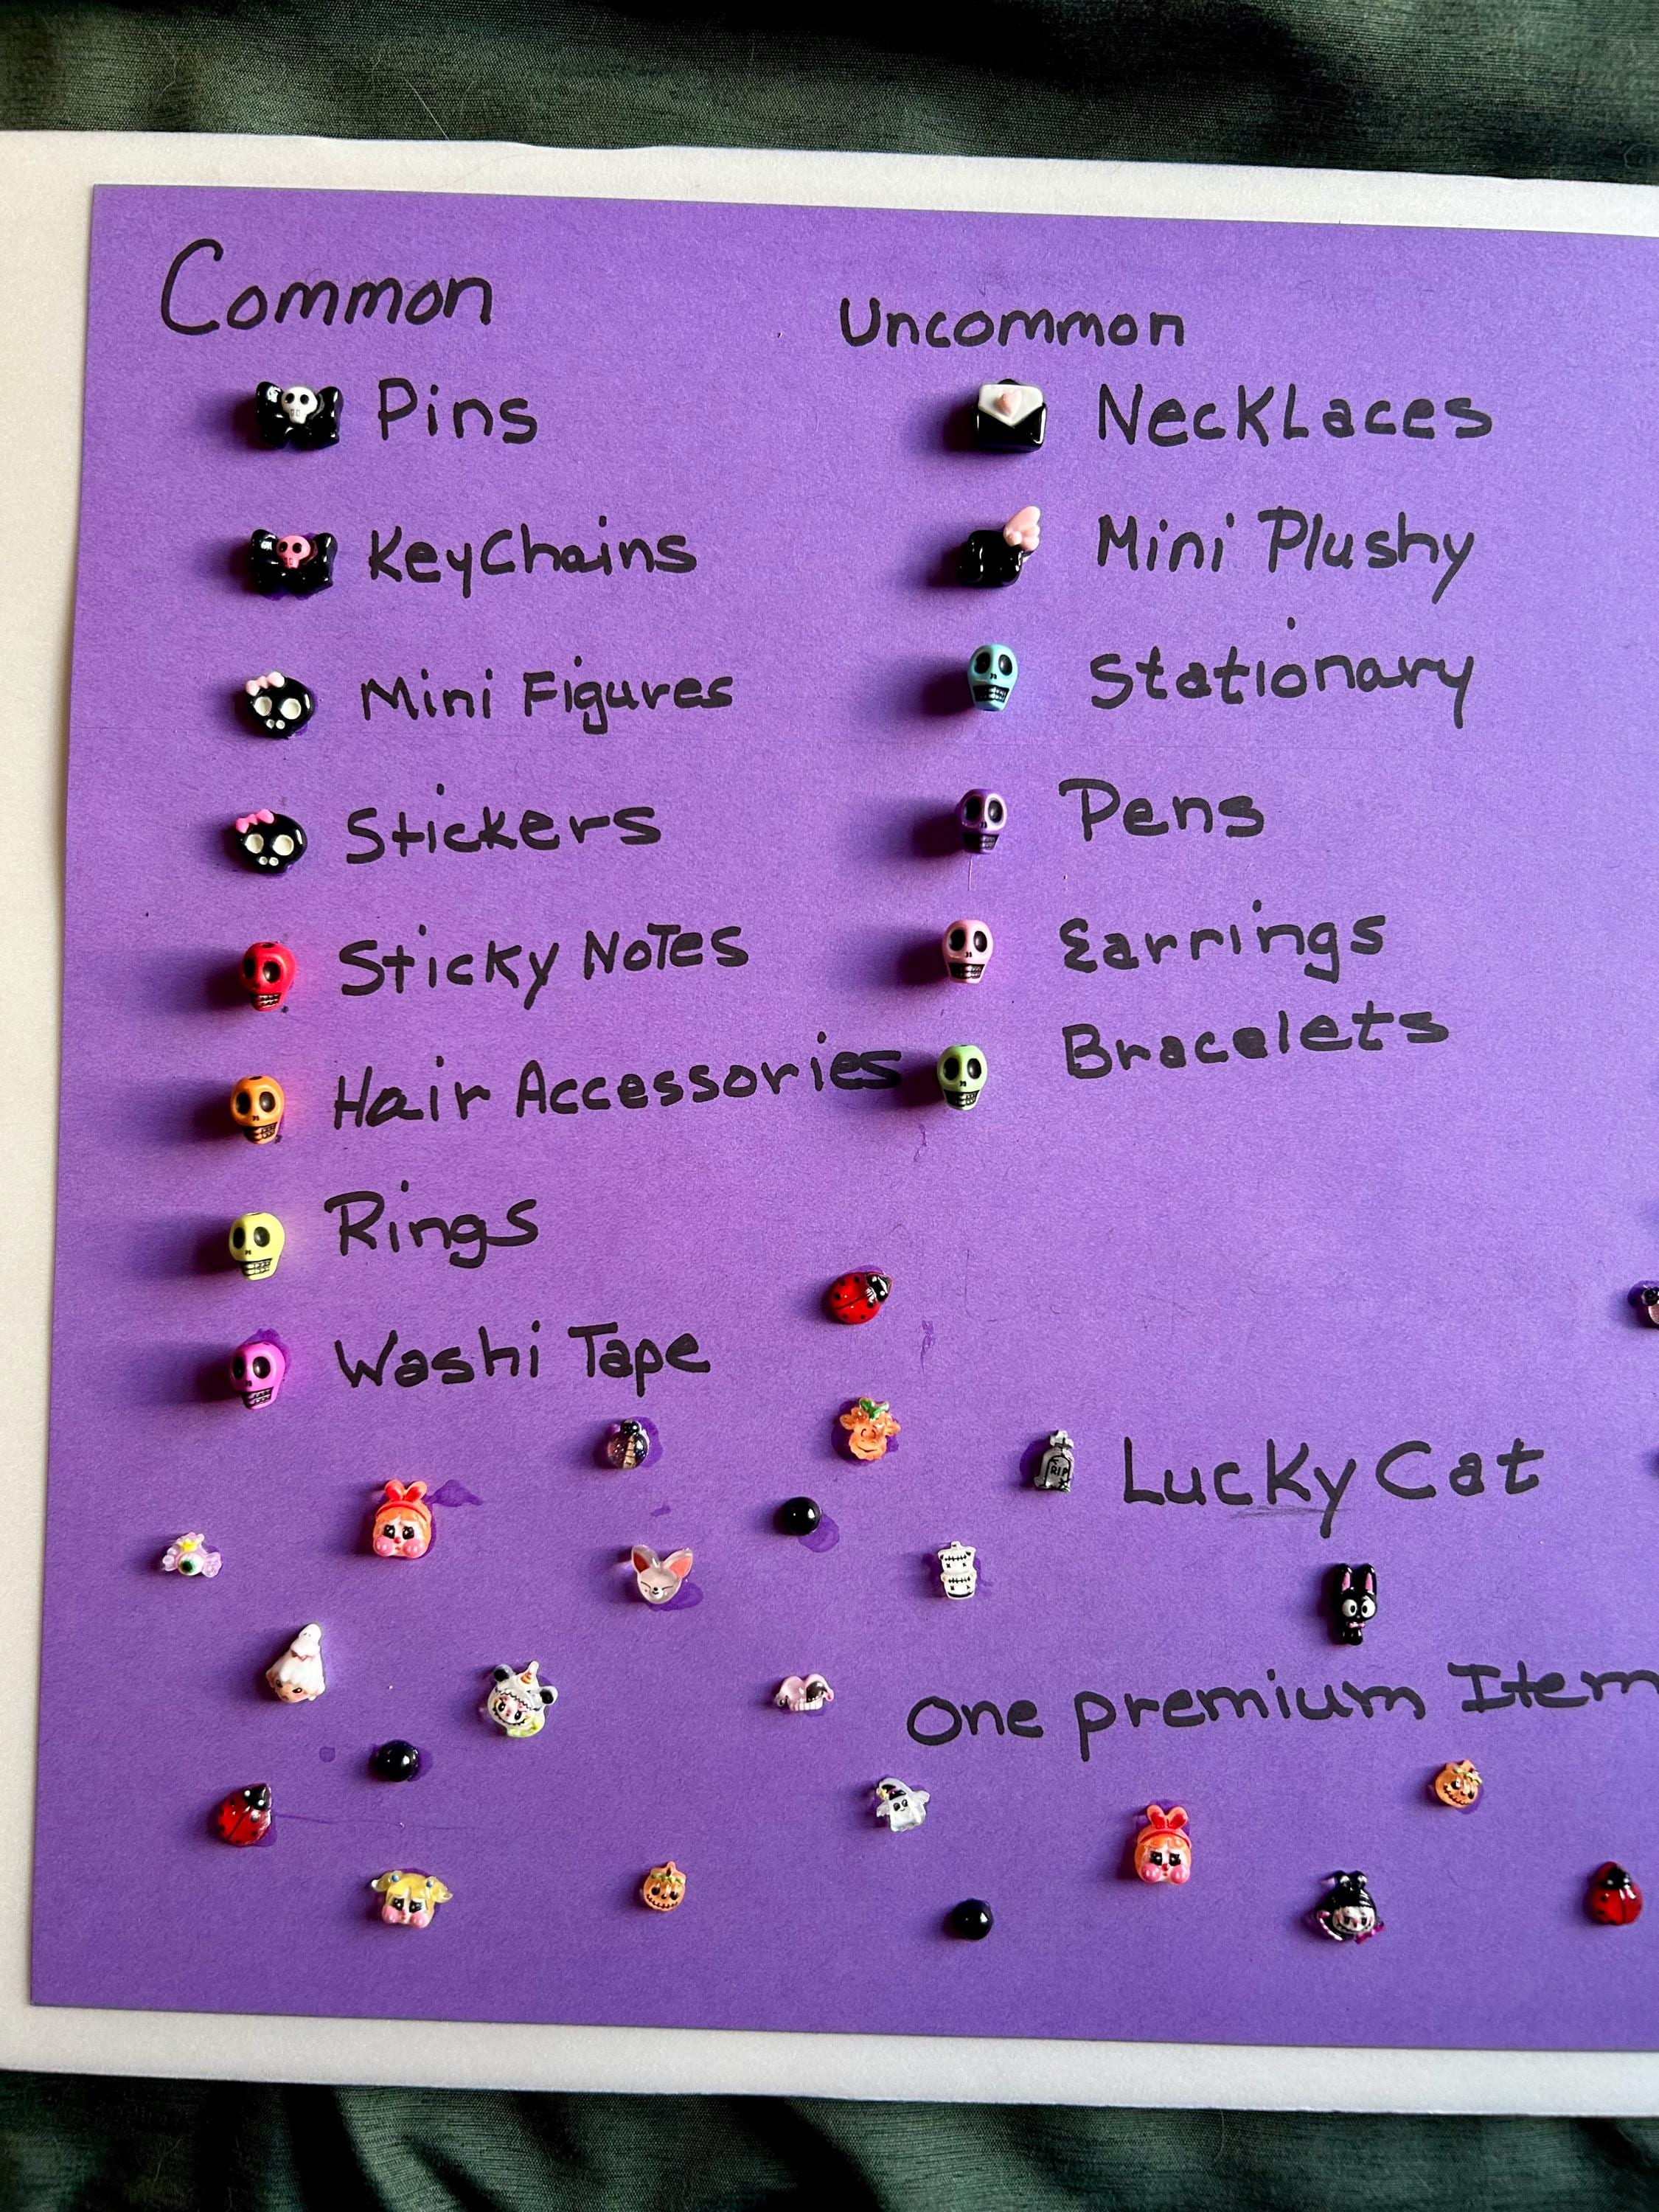 Common
Pins
KeyChains
Mini Figures
Stickers
Sticky Notes
Hair Accessories
Rings
Washi Tape
Uncommon
Necklaces
Mini Plushy
Stationary
Pens
Earrings
Bracelets
RIP
Lucky Cat
One premium Item